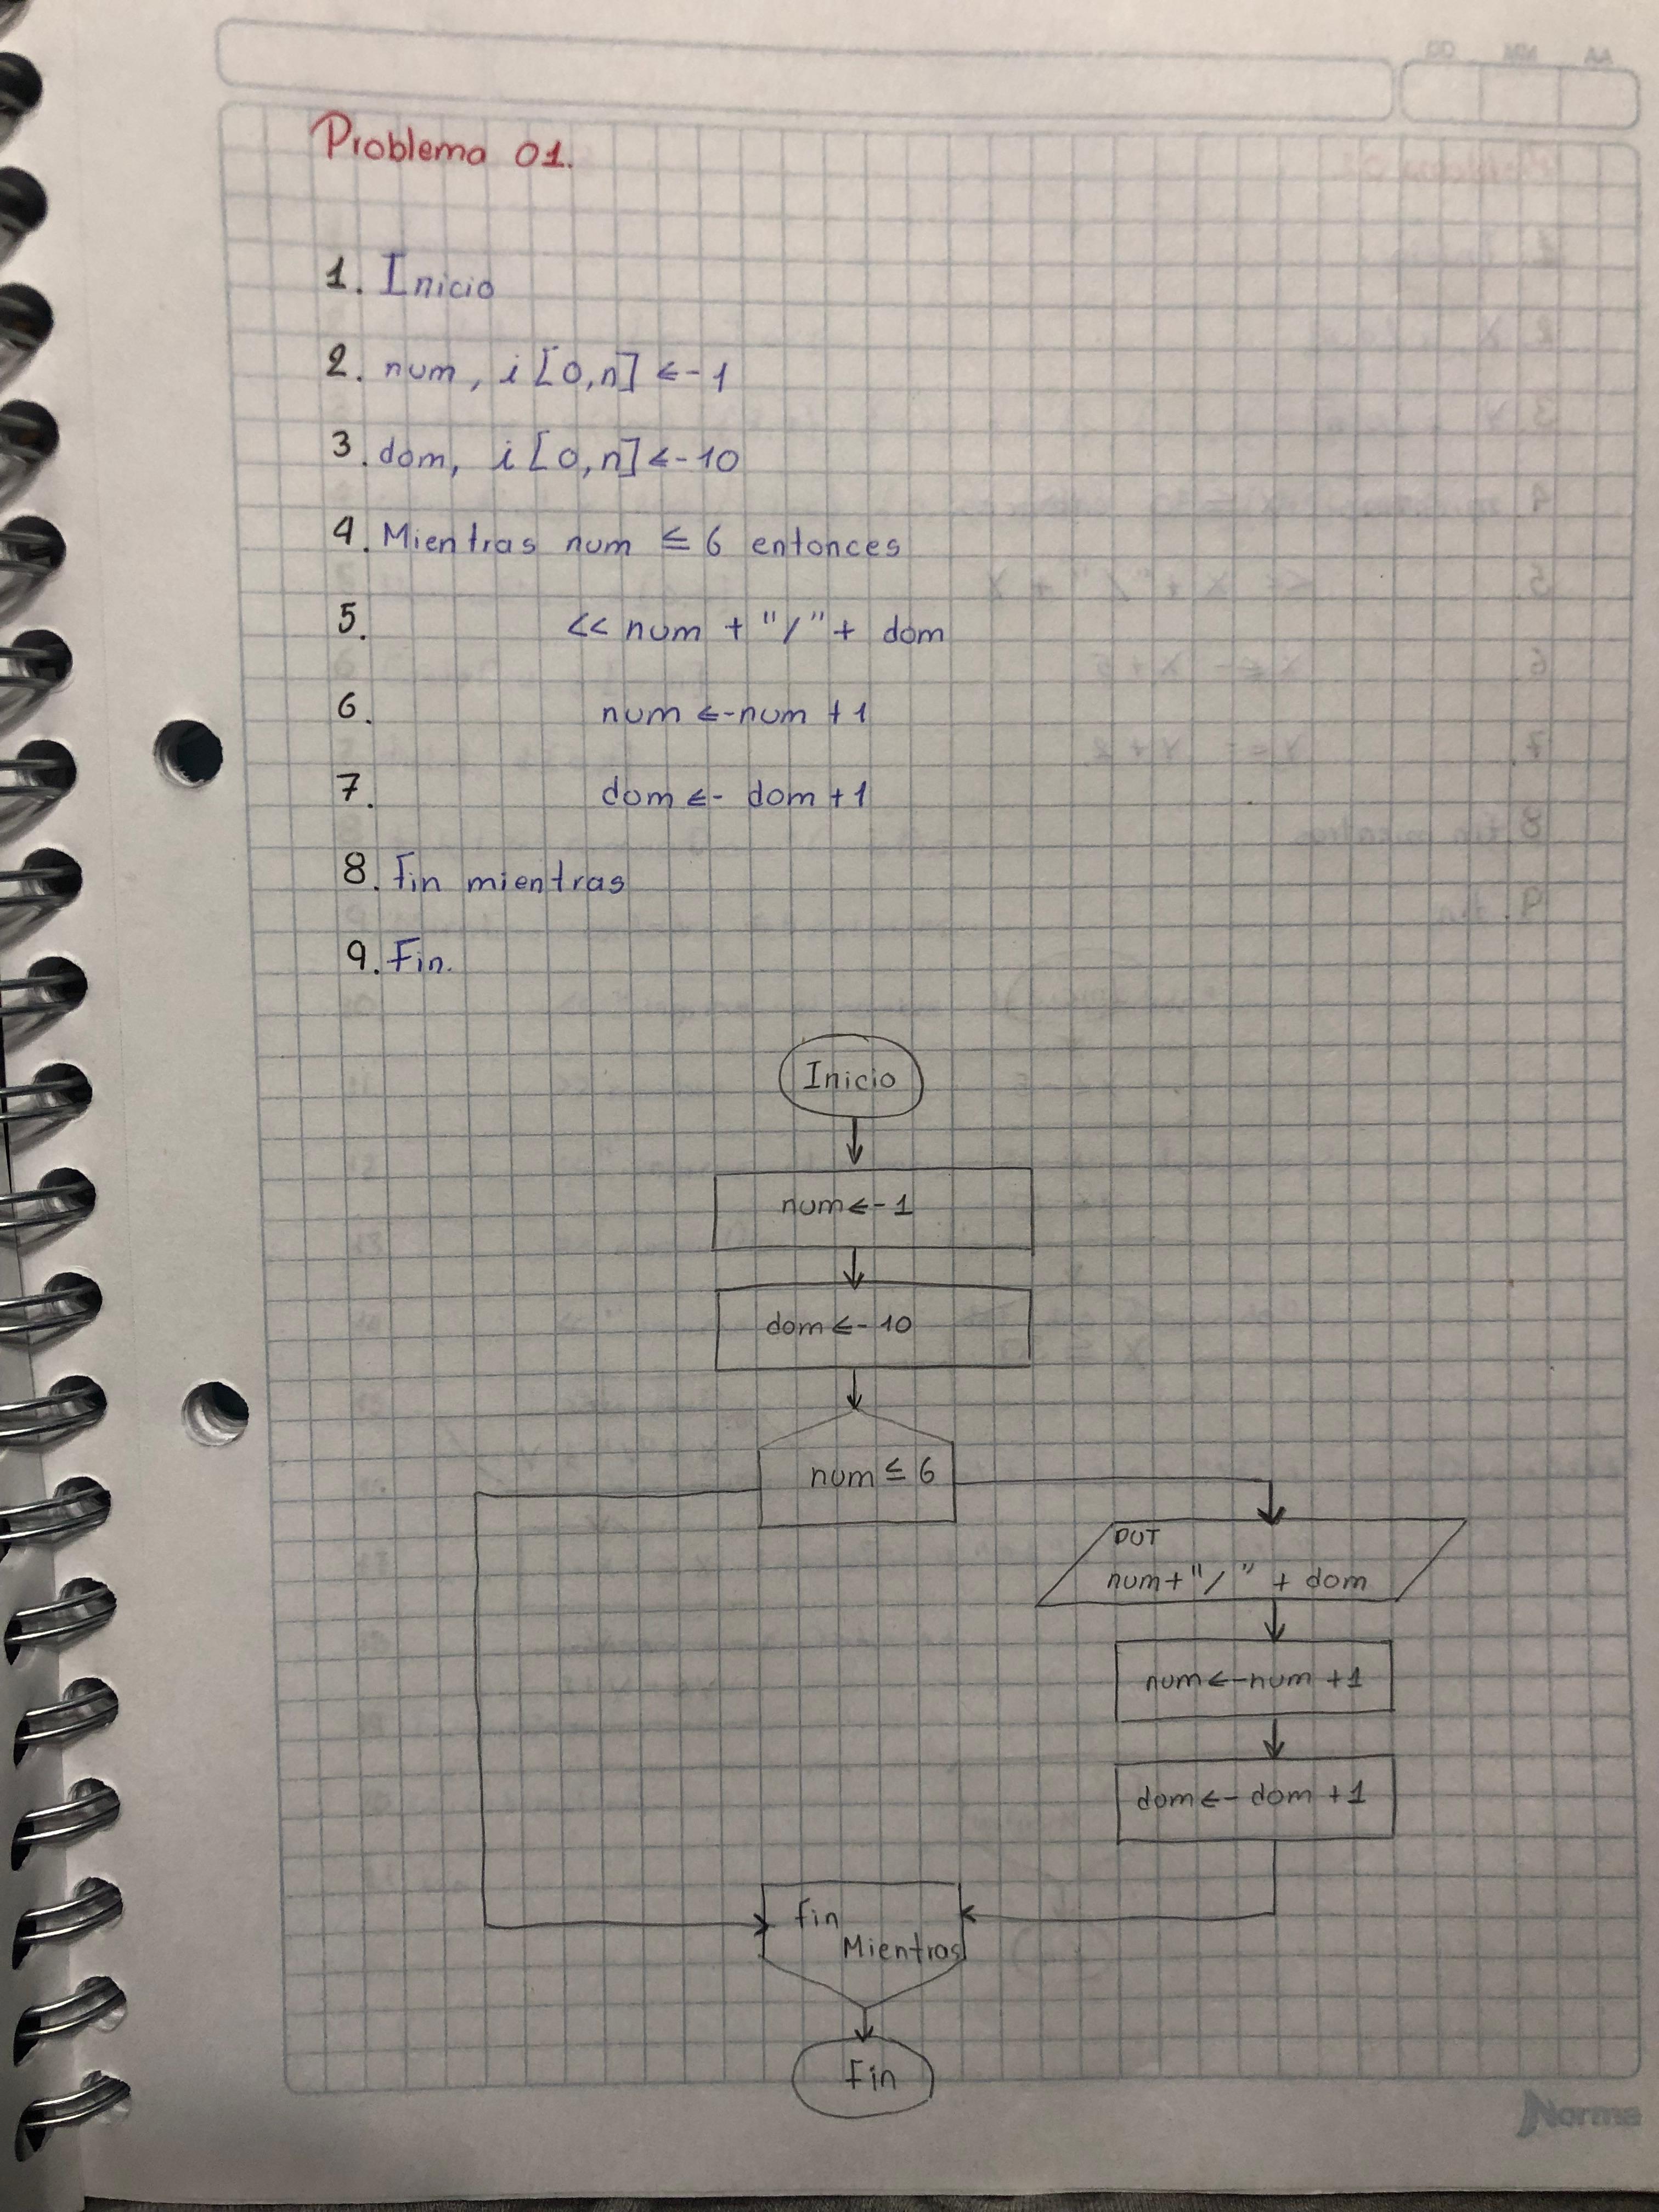 Problema 01.
1. Inicio
2. num, i [0,n] <- 1
3. dom, i [0,n] <- 10
4. Mientras num ≤ 6 entonces
5. << num + "/" + dom
6. num <- num + 1
7. dom <- dom + 1
8. Fin mientras
9. Fin.
Inicio
num <- 1
dom <- 10
num ≤ 6
OUT
num + "/" + dom
num <- num + 1
dom <- dom + 1
fin
Mientras
Fin
Norma